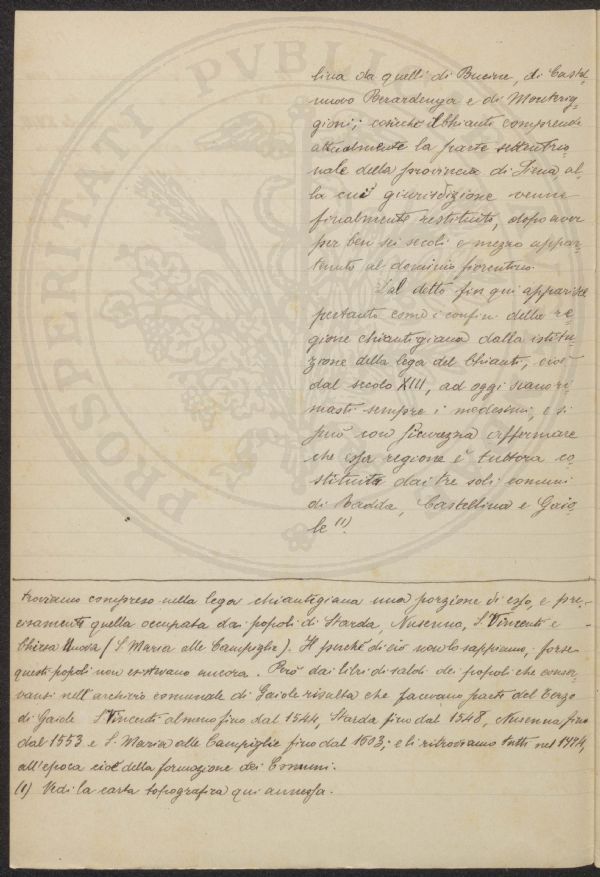 PROSPERITATI PVBLIC
lina da quelli di Bucine, di Castel-
nuovo Berardenga e di Monterig-
gioni; cosicché il Chianti comprende
attualmente la parte settentrio-
nale della provincia di Siena al-
la cui giurisdizione venne
finalmente restituito, dopo aver
per ben sei secoli e mezzo appar-
tenuto al dominio fiorentino.
Dal detto fin qui apparisce
pertanto come i confini della re-
gione chiantigiana dalla istitu-
zione della lega del Chianti, cioè
dal secolo XIII, ad oggi siano ri-
masti sempre i medesimi, e si
può con sicurezza affermare
che essa regione è tuttora co-
stituita dai tre soli comuni
di Radda, Castellina e Gaio-
le (1).
troviamo compreso nella lega chiantigiana una porzione di esso, e pre-
cisamente quella occupata dai popoli di Starda, Nusenna, S. Vincenti e
Chiesa Nuova (S. Maria alle Campiglie). Il perché di ciò non lo sappiamo, forse
questi popoli non esistevano ancora. Però dai libri di saldi dei popoli che conser-
vansi nell'archivio comunale di Gaiole risulta che facevano parte del Terzo
di Gaiole S. Vincenti almeno fino dal 1544, Starda fino dal 1548, Nusenna fino
dal 1553 e S. Maria alle Campiglie fino dal 1603; e li ritroviamo tutti nel 1774,
all'epoca cioè della formazione dei Comuni.
(1) Vedi la carta topografica qui annessa.